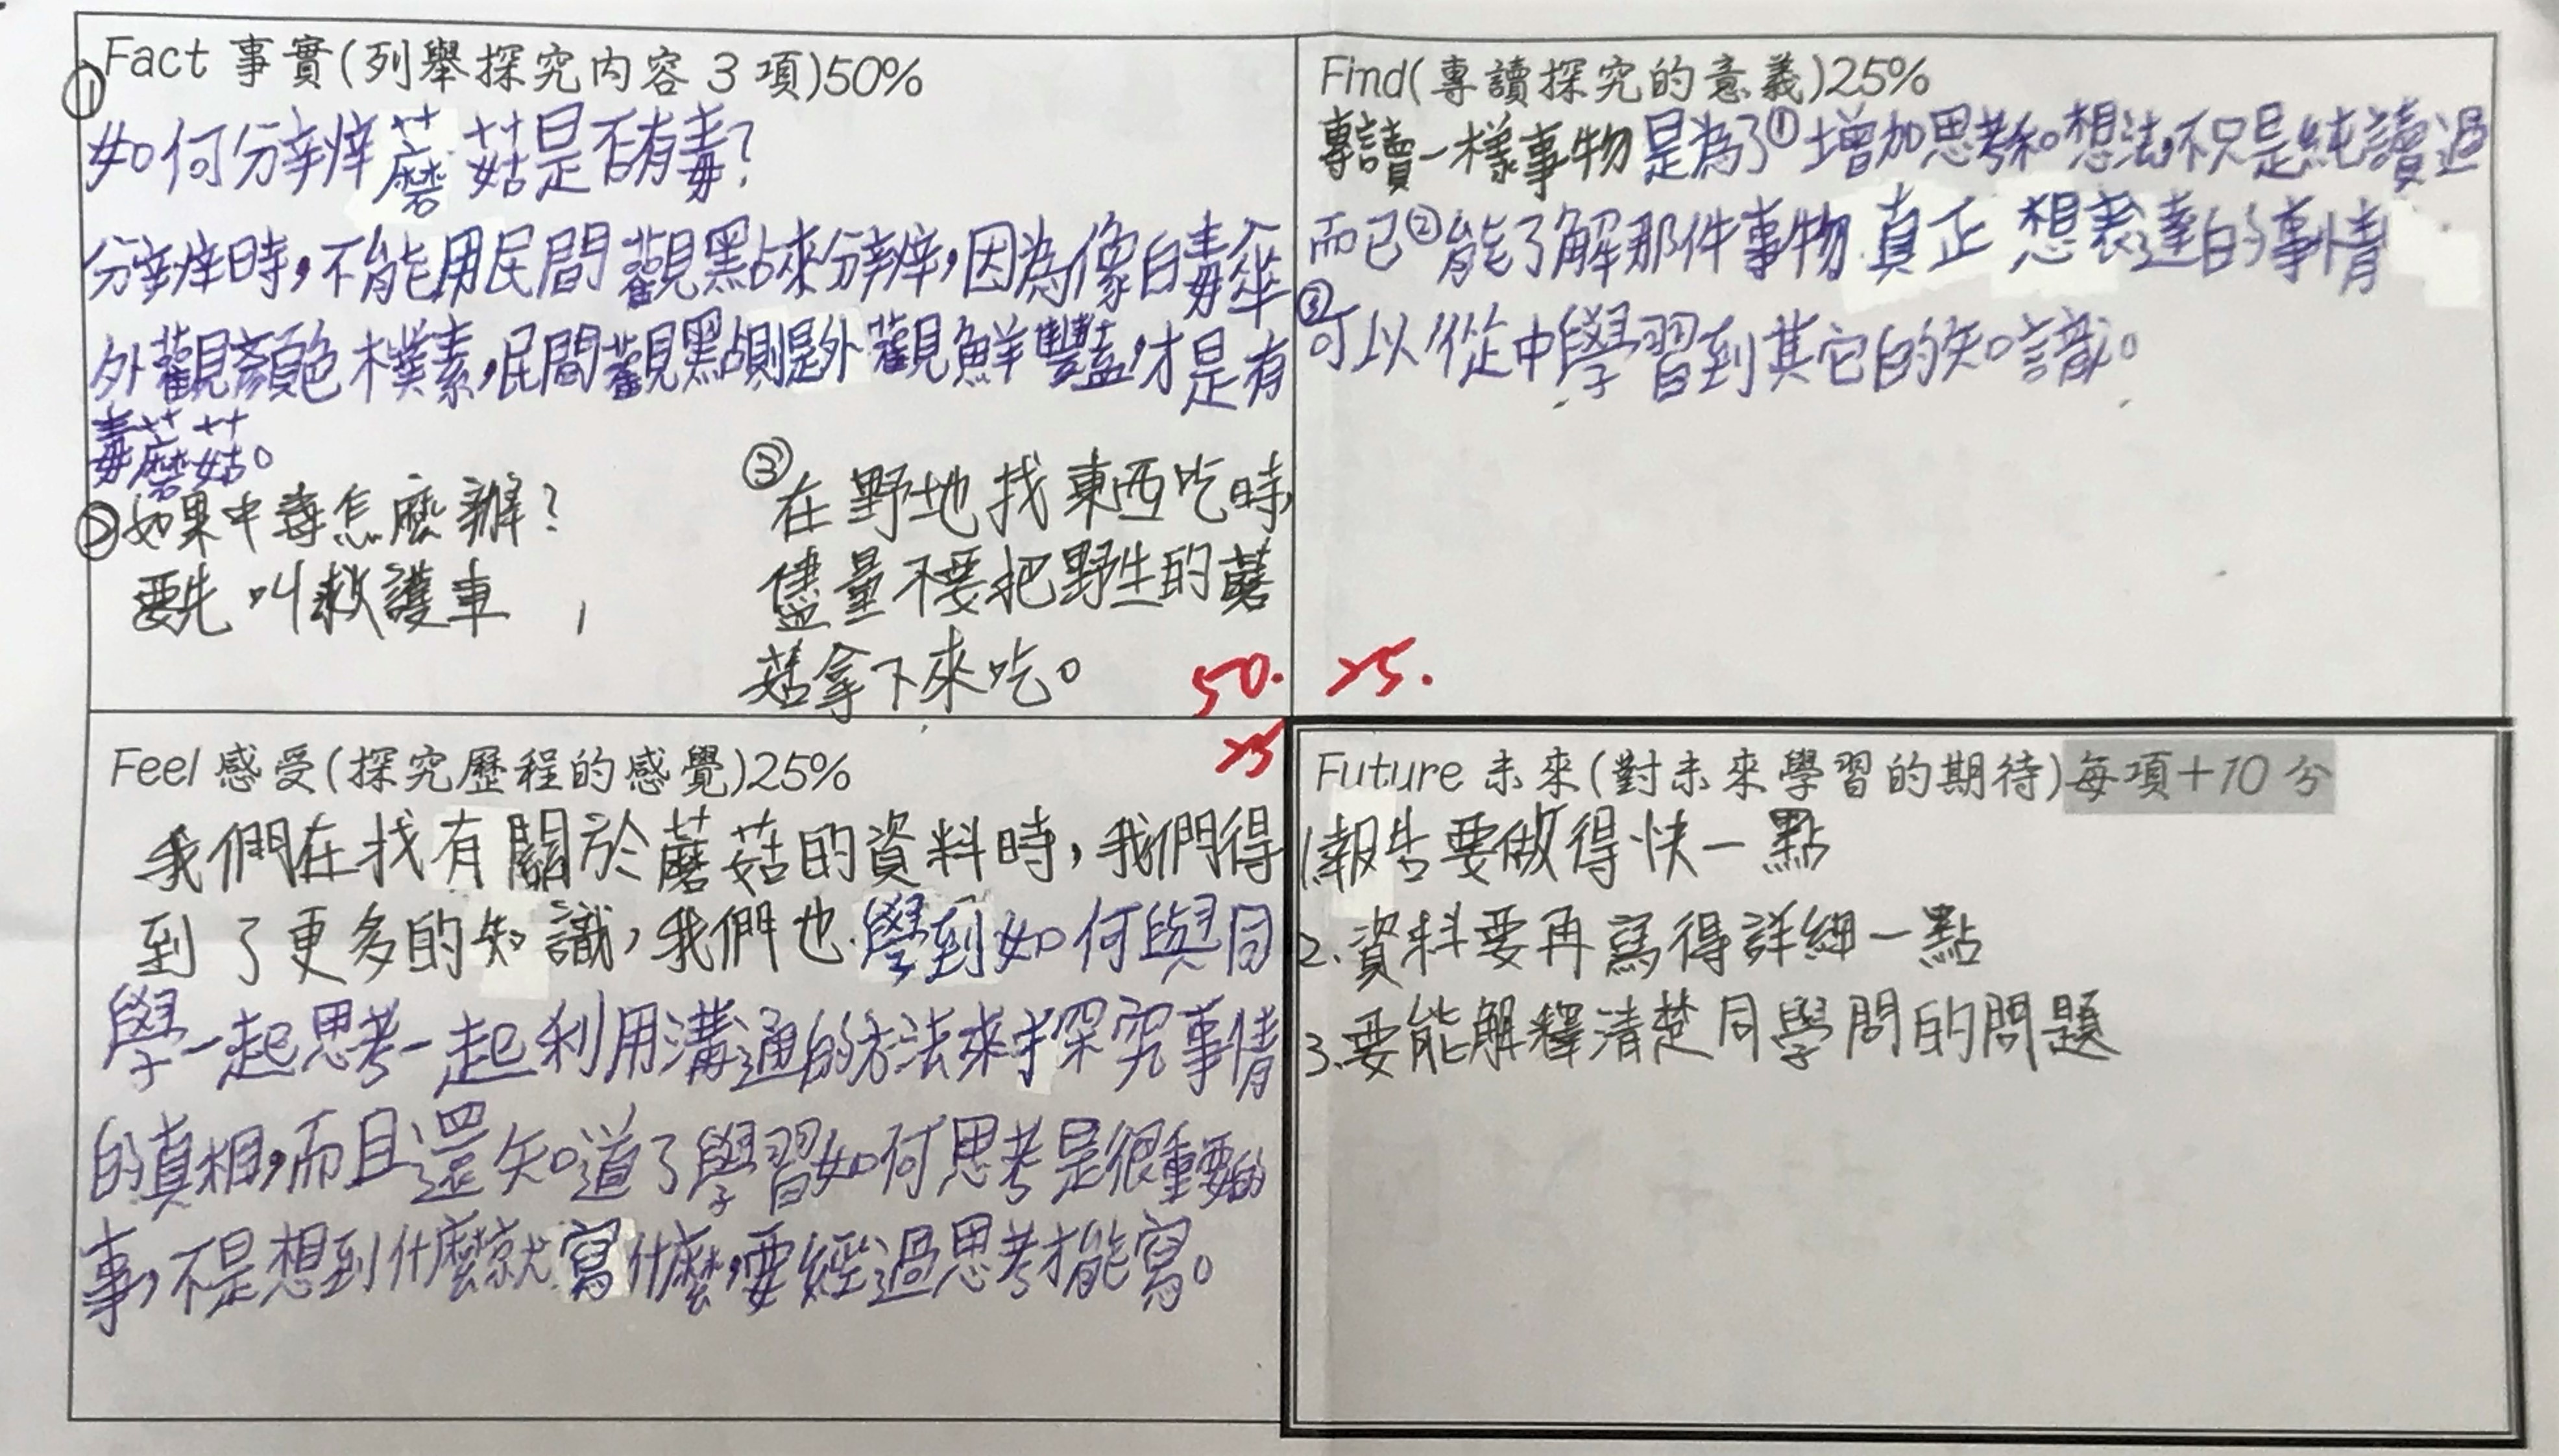 Fact 事實(列舉探究內容3項)50%
①
如何分辨蘑菇是否有毒?
分辨時,不能用民間觀點來分辨,因為像白毒傘
外觀顏色樸素,民間觀點則是外觀鮮豔,才是有
毒蘑菇。
②如果中毒怎麼辦?
要先叫救護車
③在野地找東西吃時,
儘量不要把野生的蘑
菇拿下來吃。
50.
Find(專讀探究的意義)25%
專讀一樣事物是為了①增加思考和想法,不只是純讀過
而已②能了解那件事物真正想表達的事情
③可以從中學習到其它的知識。
25.
Feel 感受(探究歷程的感覺)25%
25
我們在找有關於蘑菇的資料時,我們得
到了更多的知識,我們也學到如何與同
學一起思考一起利用溝通的方法來探究事情
的真相,而且還知道了學習如何思考是很重要的
事,不是想到什麼就寫什麼,要經過思考才能寫。
Future 未來(對未來學習的期待)每項+10分
1.報告要做得快一點
2.資料要再寫得詳細一點
3.要能解釋清楚同學問的問題